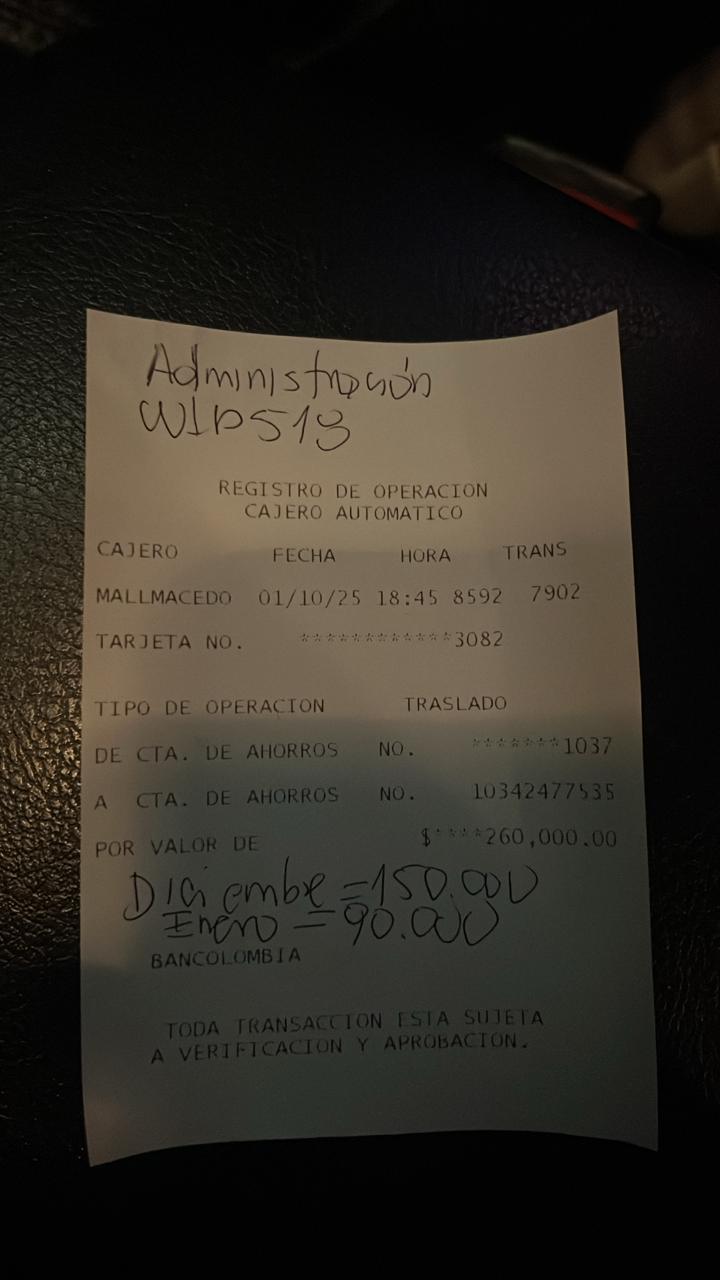 Administración
WLP513
REGISTRO DE OPERACION
CAJERO AUTOMATICO
CAJERO FECHA HORA TRANS
MALLMACEDO 01/10/25 18:45 8592 7902
TARJETA NO. ************3082
TIPO DE OPERACION TRASLADO
DE CTA. DE AHORROS NO. *******1037
A CTA. DE AHORROS NO. 10342477535
POR VALOR DE $****260,000.00
Diciembre = 150.000
Enero = 90.000
BANCOLOMBIA
TODA TRANSACCION ESTA SUJETA
A VERIFICACION Y APROBACION.